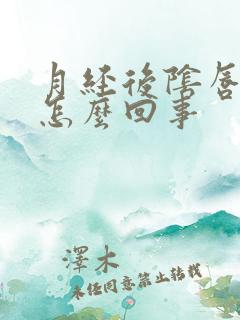 月經後陰唇
怎麼回事
澤木
未经同意禁止转载